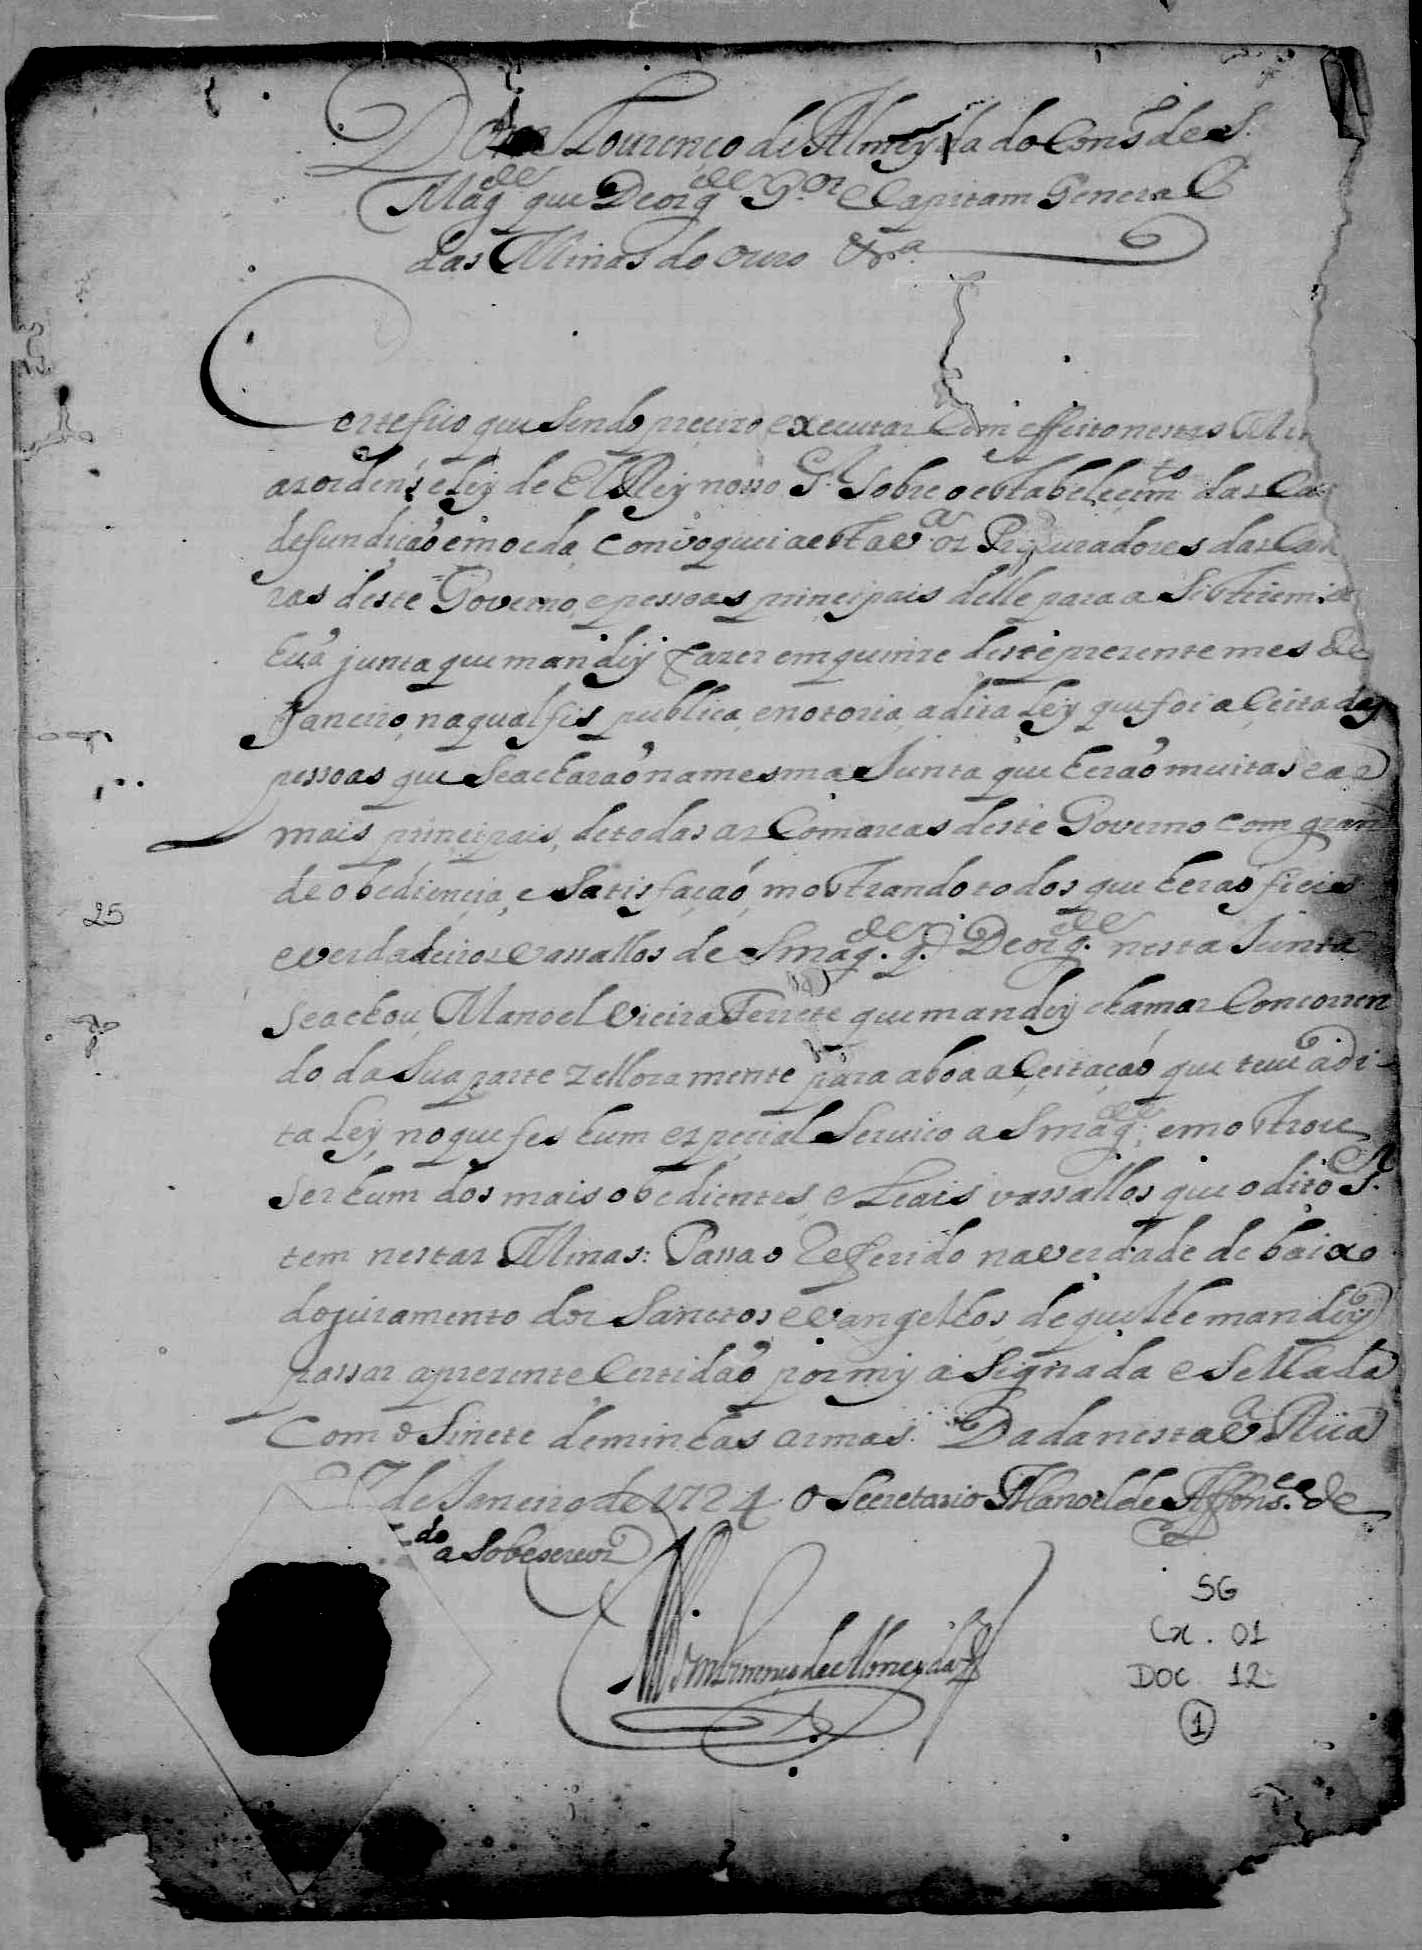 Dom Lourenço de Almeyda do Cons.º de S.
Mag.de que Deos g.de G.or e Capitam General
das Minas do ouro &.ª
Certefico que sendo preçizo executar com effeito nestas Min
as ordens, e Ley de El Rey nosso S.r sobre o establecim.to das Ca
de fundição e moeda, convoquei a esta V.ª os Procuradores das Cam
ras deste Governo, e pessoas prinçipais delle para asistirem a
hũa junta que mandey fazer em quinze deste prezente mes de
Janeiro, na qual fis publica, e notoria, a dita Ley, que foi açeita das
pessoas que se acharão na mesma Junta que herão muitas e as
mais prinçipais, de todas as Comarcas deste Governo com gran
de obediençia, e satisfação, mostrando todos que herão fieis
e verdadeiros vassallos de S mag.de q. Deos g.de nesta Junta
se achou Manoel Vieira Ferrete que mandey chamar concorren
do da sua parte zellozamente para a boa açeitação que teve a di-
ta Ley, no que fes hum espeçial serviço a S mag.de, e mostrou
ser hum dos mais obedientes, e Leais vassallos que o dito S.r
tem nestas Minas: Passa o Refferido na verdade debaixo
do juramento dos Sanctos evangelhos, de que lhe mandey
passar a prezente Certidão por my asignada e sellada
Com o sinete de minhas armas. Dada nesta V.ª Rica
27 de Janeiro de 1724. O Secretario Manoel de Affons.ca de
do a sobescrevi
Dom Lourenço de Almeyda
25
SG
Cx. 01
DOC 12
1